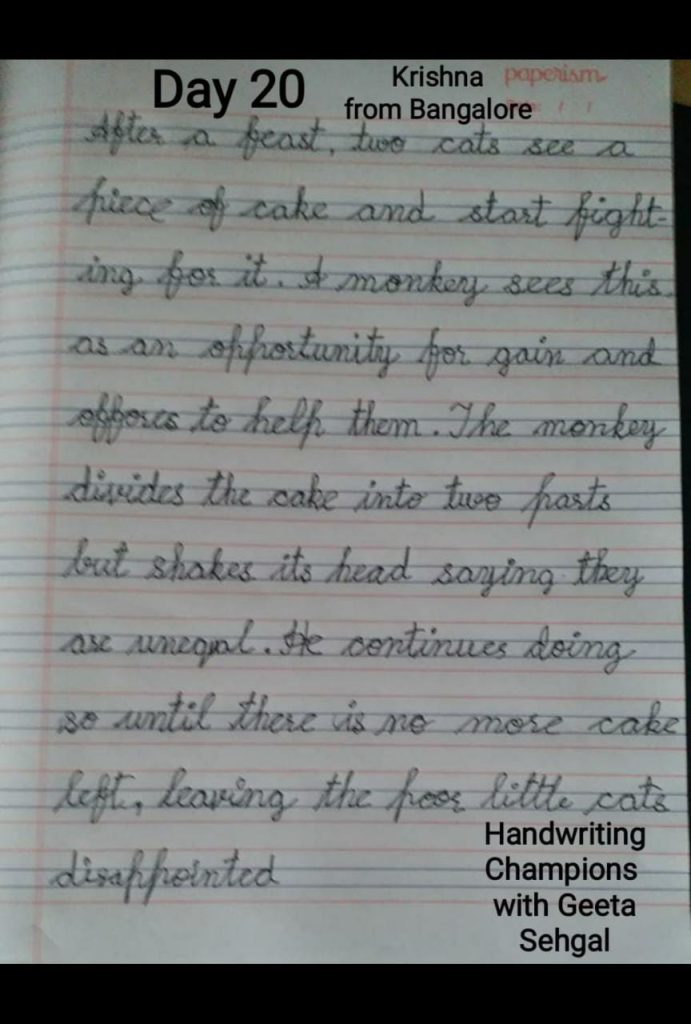 Day 20
Krishna
from Bangalore
paperism
After a feast, two cats see a
piece of cake and start fight-
ing for it. A monkey sees this
as an opportunity for gain and
offores to help them. The monkey
divides the cake into two parts
but shakes its head saying they
are unequal. He continues doing
so until there is no more cake
left, leaving the poor little cats
disappointed
Handwriting
Champions
with Geeta
Sehgal